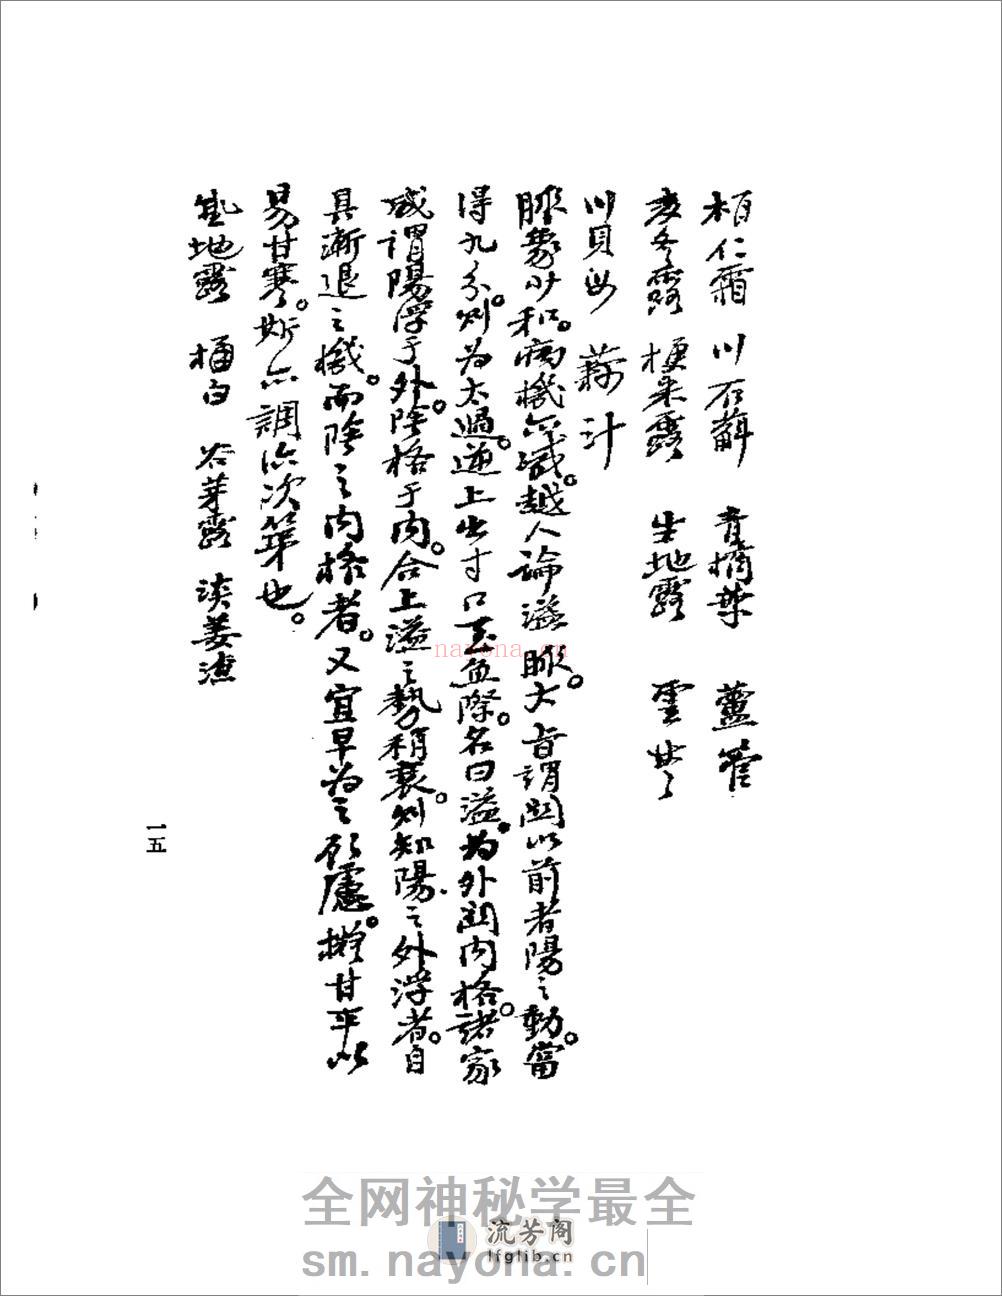 柏仁霜　川石斛　青橘葉　蘆管
麥冬露　梗米露　生地露　雲苓
川貝母　藕汁
脈象少和。病機亦減。越人論溢脈。大旨謂關以前者陽之動。當
得九分。則為太過。逆上出寸口至魚際。名曰溢。為外關內格。諸家
咸謂陽浮于外。陰格于內。合上溢之勢稍衰。則知陽之外浮者。自
具漸退之機。而陰之內格者。又宜早為之顧慮。擬甘平以
易甘寒。斯亦調次第也。
地露　橘白　谷芽露　淡姜渣
一五
nayona.cn
全网神秘学最全
流芳阁
lfglib.cn
sm.nayona.cn